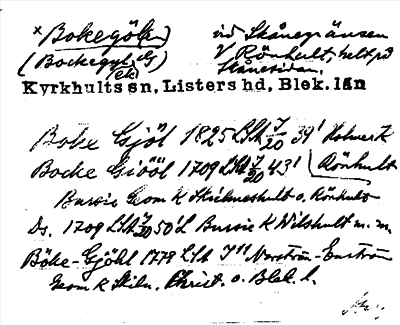 × Bokegölen vid Skånegränsen
(Bockegyl, G) V Rönhult, helt på
(ek) Skånesidan.
Kyrkhults sn, Listers hd, Blek. län
Boke Gjöl 1825 Lſt J/20 39' Holmer K
Bocke Giööl 1709 Lſt J/20 43' Rönhult
Bursie Geom K Skickneshult o. Rönhult
Ds. 1709 Lſt J/20 50' L Bursie K Vilshult m. m.
Böke-Gjöhl 1778 Lſt J'' Norström-Enström
Geom K Skiln. Christ. o. Blek. l.